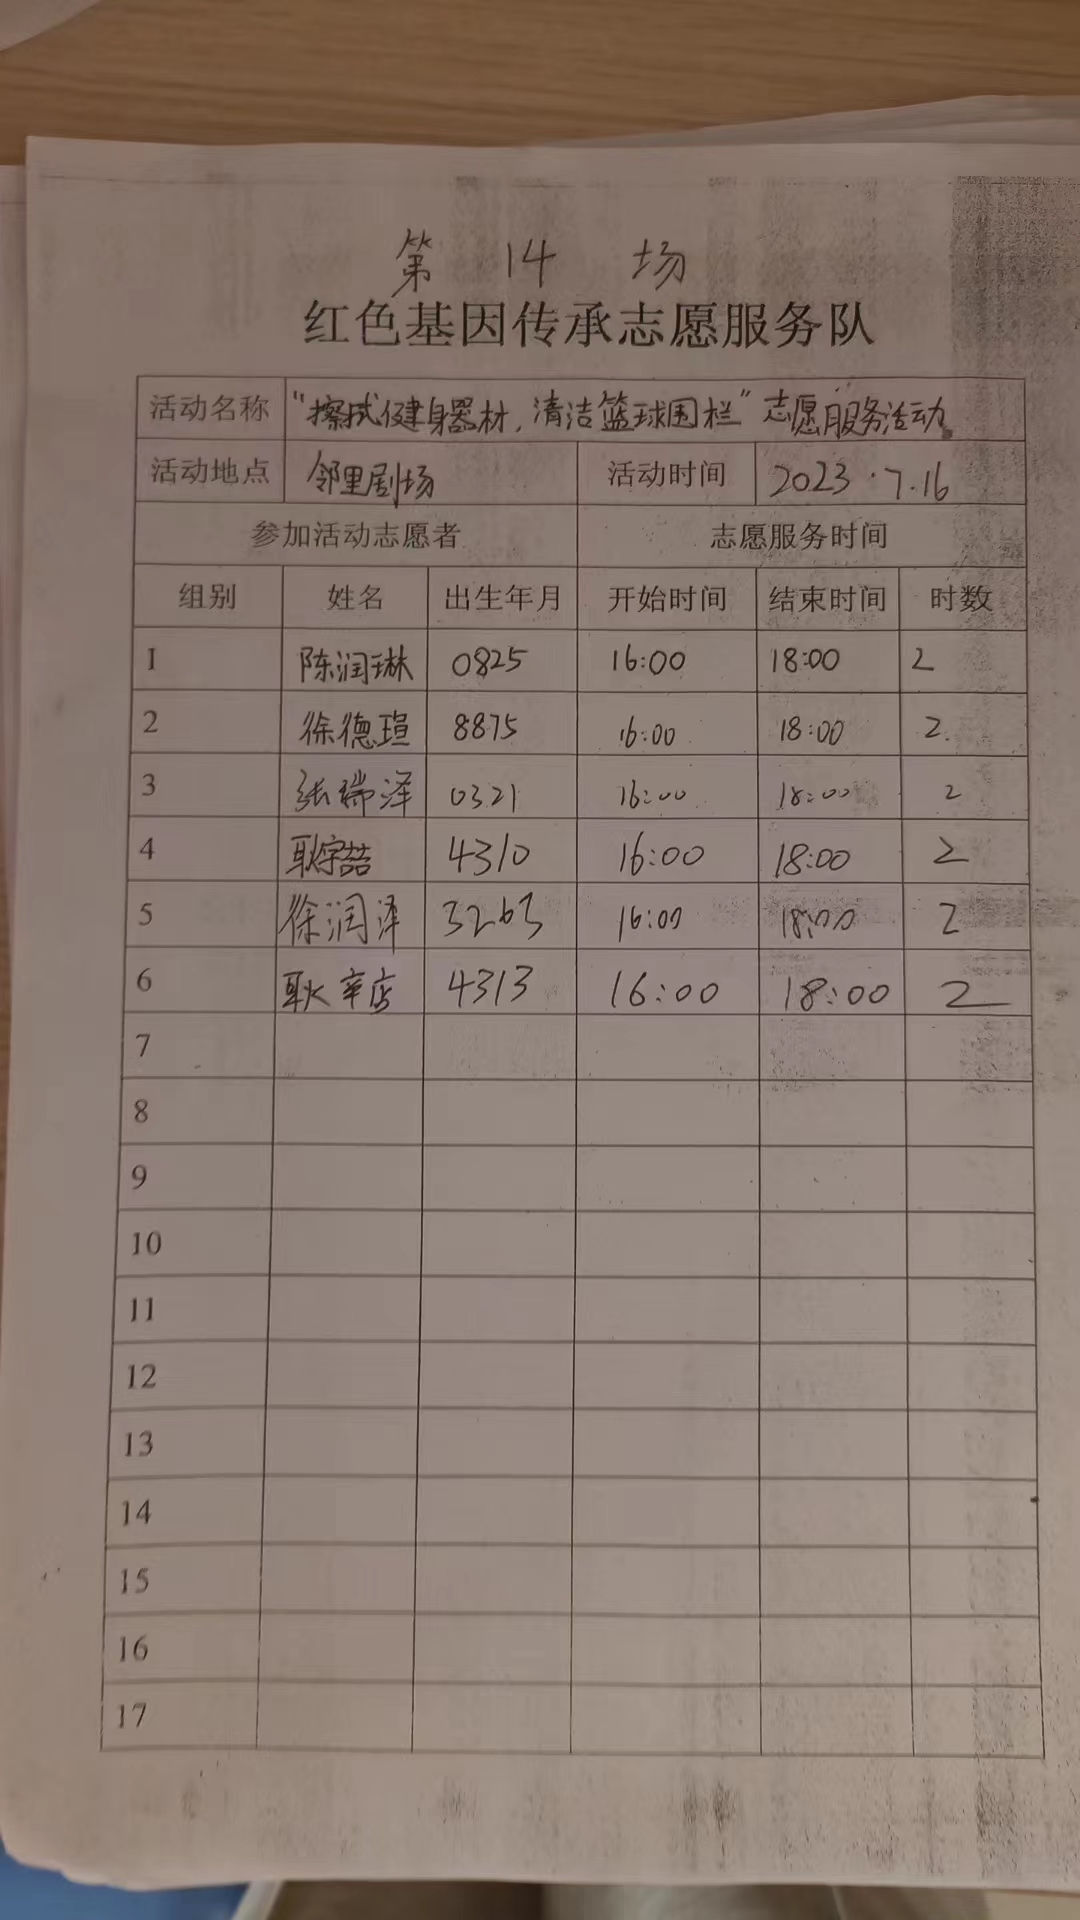 第 14 场
红色基因传承志愿服务队
活动名称 “擦拭健身器材，清洁篮球围栏”志愿服务活动
活动地点 邻里剧场 活动时间 2023.7.16
参加活动志愿者 志愿服务时间
组别 姓名 出生年月 开始时间 结束时间 时数
1 陈润琳 0825 16:00 18:00 2
2 徐德瑄 8875 16:00 18:00 2.
3 张瑞泽 0321 16:00 18:00 2
4 耿宇喆 4310 16:00 18:00 2
5 徐润泽 3263 16:00 18:00 2
6 耿 4313 16:00 18:00 2
7
8
9
10
11
12
13
14
15
16
17